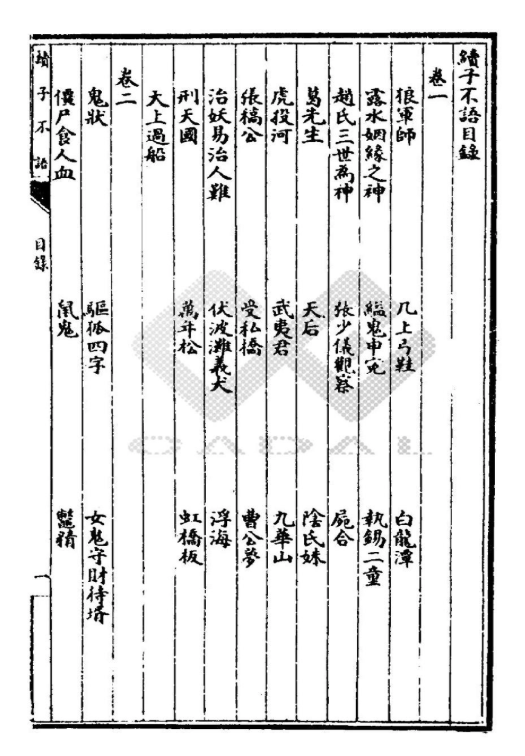 續子不語目錄
卷一
狼軍師 几上弓鞋 白龍潭
露水姻緣之神 縊鬼申冤 執錫二童
趙氏三世為神 張少儀觀察 屍合
葛先生 天后 陰氏妹
虎投河 武夷君 九華山
張稿公 受私橋 曹公夢
治妖易治人難 伏波灘義犬 浮海
刑天國 萬年松 虹橋板
天上過船
卷二
鬼狀 驅狐四字 女鬼守財待壻
僵尸食人血 鼠鬼 鼈精
續子不語 目錄 一
CADAL